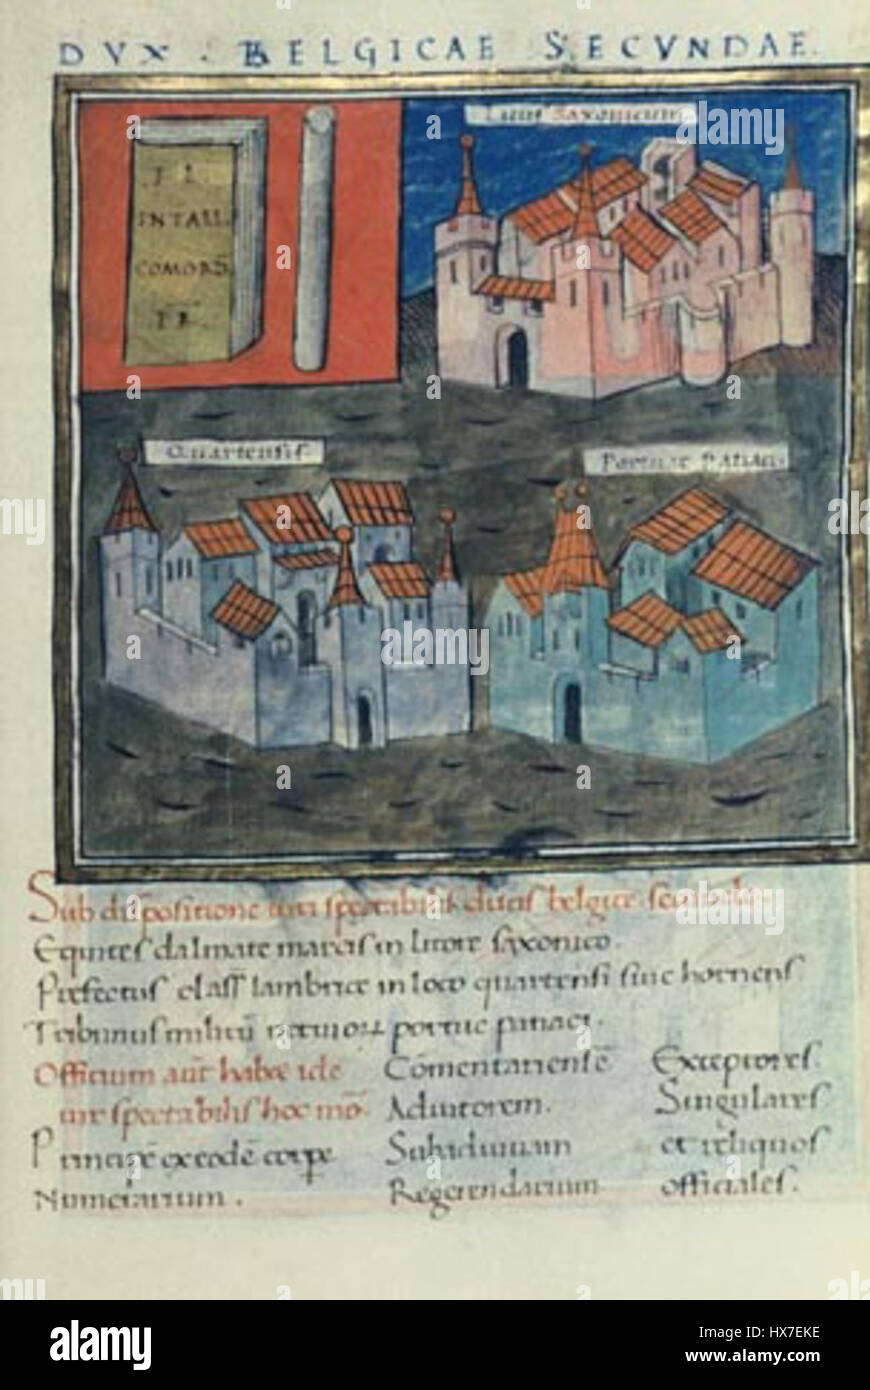 DVX . BELGICAE SECVNDAE.
Litus Saxonicum.
FL
INTALL
COMORD
PR
Quartensis.
Portuae Patiaci
Sub dispositione uiri spectabilis ducis belgice secunde.
Equites dalmate marcis in litore saxonico.
Prefectus class sambrice in loco quartensi siue hornensi.
Tribunus militū neruiorum portuc patiaci.
Officium aūt habet ide
uir spectabilis hoc mō.
Principē ex eodē corpe
Numerarium.
Cōmentariensē
Adiutorem.
Subadiuuam
Regerendarium
Exceptores.
Singulares
et reliquos
officiales.
a
alamy stock photo
HX7EKE
www.alamy.com